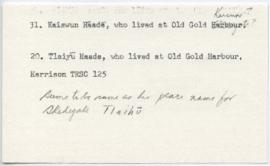 31. Kaiswun Haade, who lived at Old Gold Harbour.
20. Tlaiyū Haade, who lived at Old Gold Harbour.
Harrison TRSC 125
Seems to be same as his peace name for
Skidegate Tlaihū